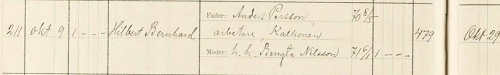 Fader: Anders Persson, 70 5/5
211 okt 9 1 - - - Hilbert Bernhard arbetare, Kalkonen 479 Okt 29
Moder: h. h. Bengta Nilsson 71 6/1 1 - - -